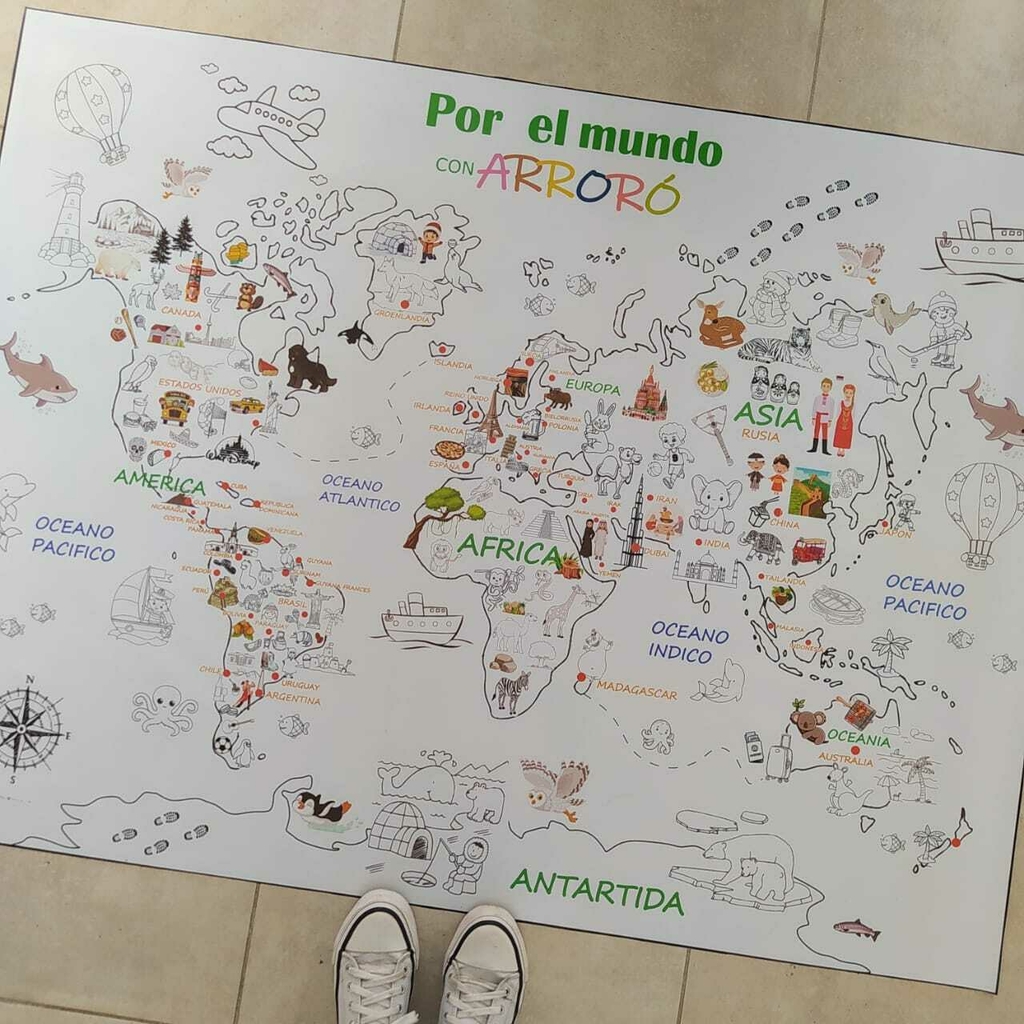 Por el mundo
CON ARRORÓ
CANADA
GROENLANDIA
ISLANDIA
ESTADOS UNIDOS
WALT DISNEY
MEXICO
AMERICA
CUBA
REPUBLICA
DOMINICANA
GUATEMALA
NICARAGUA
COSTA RICA
PANAMA
VENEZUELA
GUYANA
GUYANA FRANCES
ECUADOR
PERÚ
BRASIL
BOLIVIA
PARAGUAY
CHILE
URUGUAY
ARGENTINA
OCEANO
PACIFICO
OCEANO
ATLANTICO
EUROPA
REINO UNIDO
IRLANDA
BIELORRUSIA
POLONIA
FRANCIA
AUSTRIA
ESPAÑA
TURQUIA
SIRIA
ASIA
RUSIA
IRAN
CHINA
JAPON
DUBAI
INDIA
YEMEN
TAILANDIA
MALASIA
INDONESIA
AFRICA
MADAGASCAR
OCEANO
INDICO
OCEANO
PACIFICO
OCEANIA
AUSTRALIA
N
E
S
ANTARTIDA